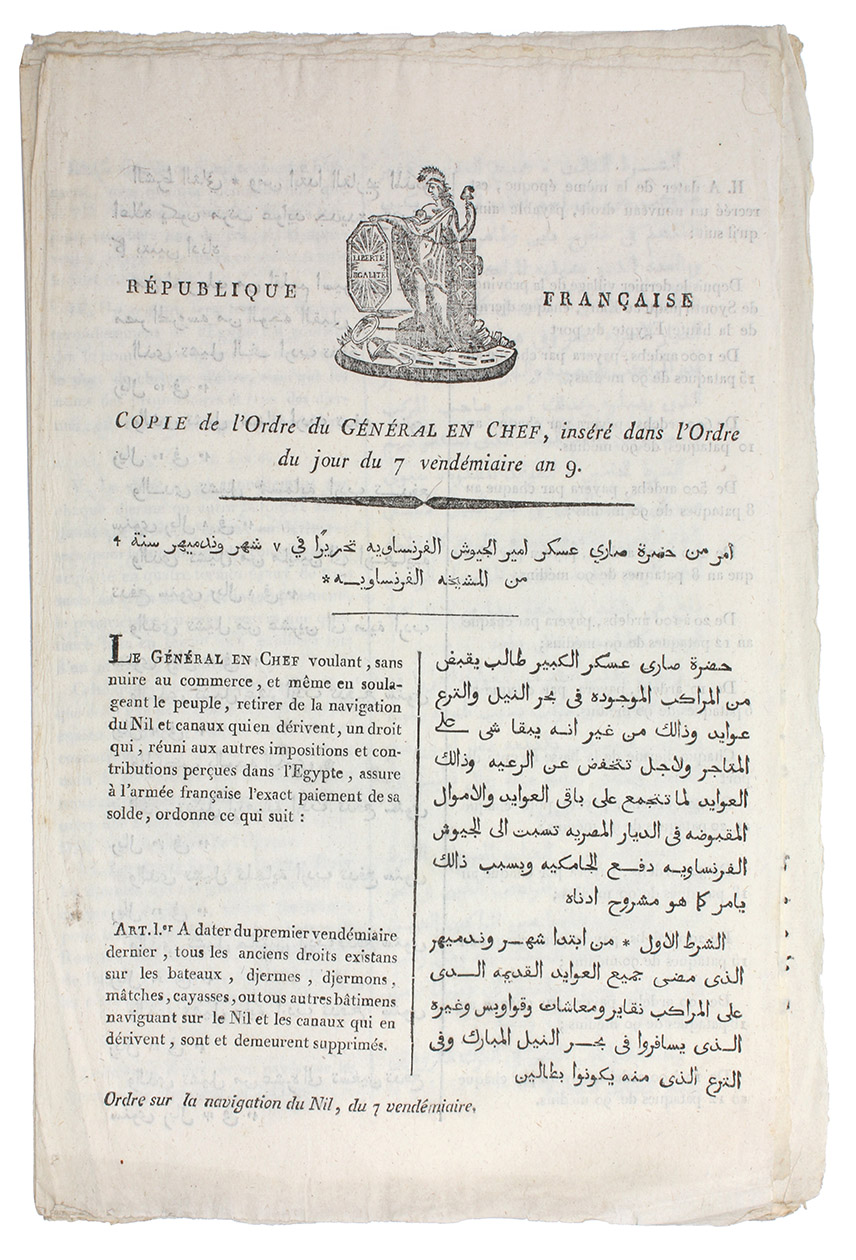 RÉPUBLIQUE
LIBERTÉ
EGALITÉ
FRANÇAISE
COPIE de l'Ordre du GÉNÉRAL EN CHEF, inséré dans l'Ordre
du jour du 7 vendémiaire an 9.
أمر من حضرة صاري عسكر امير الجيوش الفرنساويه تحريرًا في ٧ شهر وندميهر سنة ٩
من المشيخه الفرنساويــه *
LE GÉNÉRAL EN CHEF voulant, sans
nuire au commerce, et même en soula-
geant le peuple, retirer de la navigation
du Nil et canaux qui en dérivent, un droit
qui, réuni aux autres impositions et con-
tributions perçues dans l'Egypte, assure
à l'armée française l'exact paiement de sa
solde, ordonne ce qui suit :
ART. I.er A dater du premier vendémiaire
dernier, tous les anciens droits existans
sur les bateaux, djermes, djermons,
mâtches, cayasses, ou tous autres bâtimens
naviguant sur le Nil et les canaux qui en
dérivent, sont et demeurent supprimés.
حضرة صارى عسكر الكبير طالب يقبض
من المراكب الموجوده فى بحر النيل والترع
عوايد وذالك من غير انه يبقا شى على
المتاجر ولاجل تتخفض عن الرعيه وذالك
العوايد لما تتجمع على باقى العوايد والاموال
المقبوضه فى الديار المصريه تسبت الى الجيوش
الفرنساويــه دفــع الجامكيه وبسبب ذالك
يامر كما هو مشروح ادناه
الشرط الاول * من ابتدا شهــر وندميهر
الذى مضى جميع العوايد القديمه الــذى
على المراكب نقاير ومعاشات وقواويس وغيره
الــذى يسافروا فى بحــر النيل المبارك وفى
الترع الذى منه يكونوا بطالين
Ordre sur la navigation du Nil, du 7 vendémiaire.